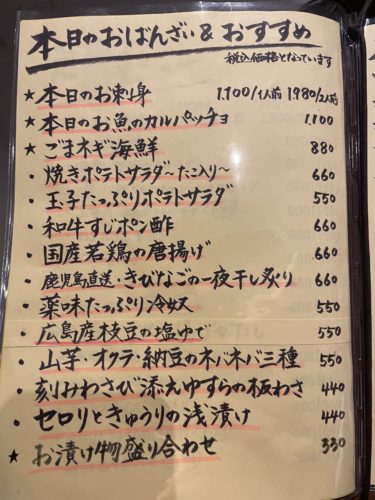 本日のおばんざい&おすすめ
税込価格となっています
★本日のお刺身 1.100/1人前 1.980/2人前
★本日のお魚のカルパッチョ 1.100
★ごまネギ海鮮 880
・焼きポテトサラダ~たこ入り~ 660
・玉子たっぷりポテトサラダ 550
・和牛すじポン酢 660
・国産若鶏の唐揚げ 660
・鹿児島直送・きびなごの一夜干し炙り 660
・薬味たっぷり冷奴 550
・広島産枝豆の塩ゆで 550
・山芋・オクラ・納豆のネバネバ三種 550
・刻みわさび添えゆすらの板わさ 440
・セロリときゅうりの浅漬け 440
★お漬け物盛り合わせ 330